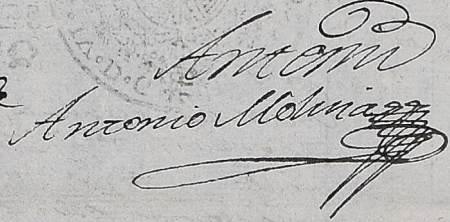 Antoni
Antonio Molina